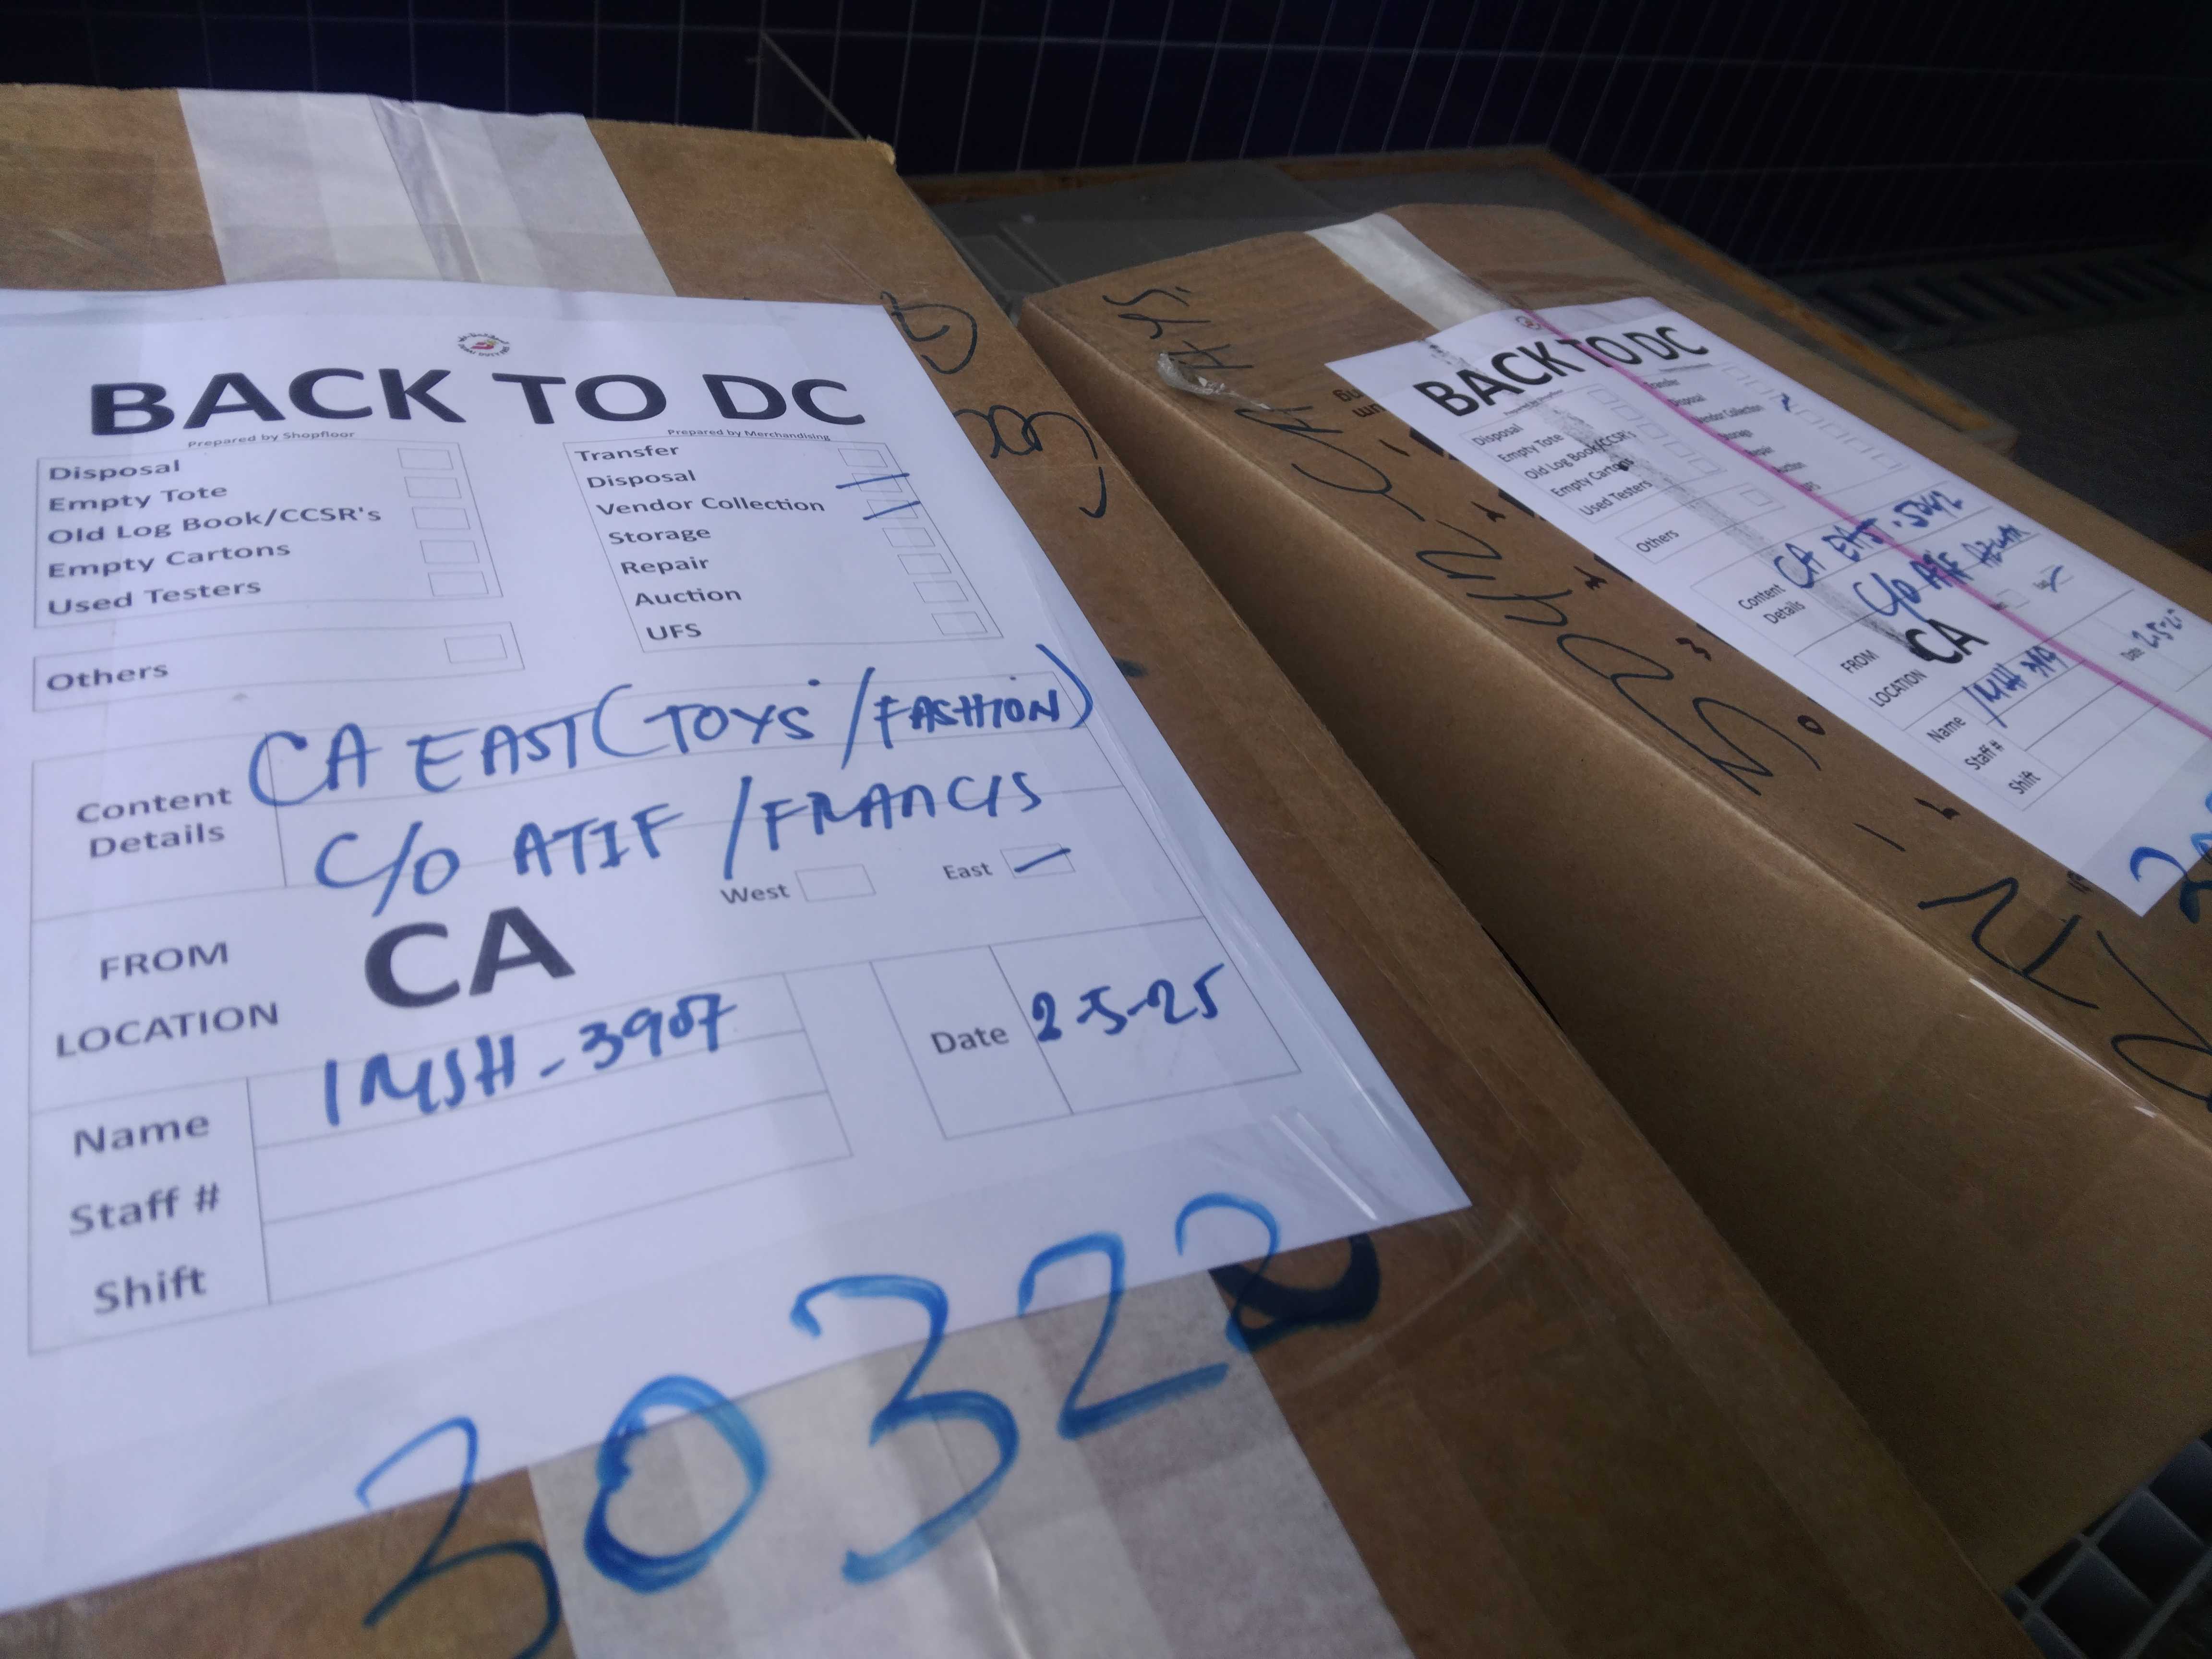 BACK TO DC
Prepared by Shopfloor
Disposal
Empty Tote
Old Log Book/CCSR's
Empty Cartons
Used Testers
Others
Prepared by Merchandising
Transfer
Disposal
Vendor Collection
Storage
Repair
Auction
UFS
Content Details
CA EAST (TOYS / FASHION)
C/O ATIF / FRANCIS
West
East
FROM LOCATION
CA
Name
IMSH-3907
Staff #
Shift
Date
2-5-25
30322
BACK TO DC
Prepared by Shopfloor
Disposal
Empty Tote
Old Log Book/CCSR's
Empty Cartons
Used Testers
Others
Transfer
Disposal
Vendor Collection
Storage
Repair
Content Details
CA EAST
C/O ATIF
FROM LOCATION
CA
Name
Staff #
Shift
Date
2-5-25
CA